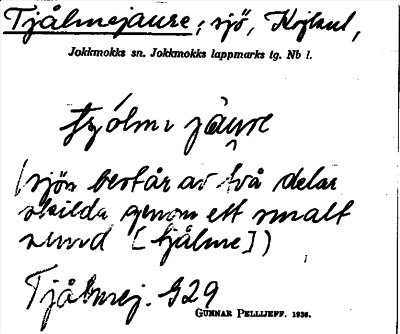 Tjålmejaure, sjö,
Jokkmokks sn. Jokkmokks lappmarks tg. Nb l.
tjolme jaure
(sjön består av två delar
skilda genom ett smalt
sund [tjålme])
Tjålmej. G29
GUNNAR PELLIJEFF. 1936.